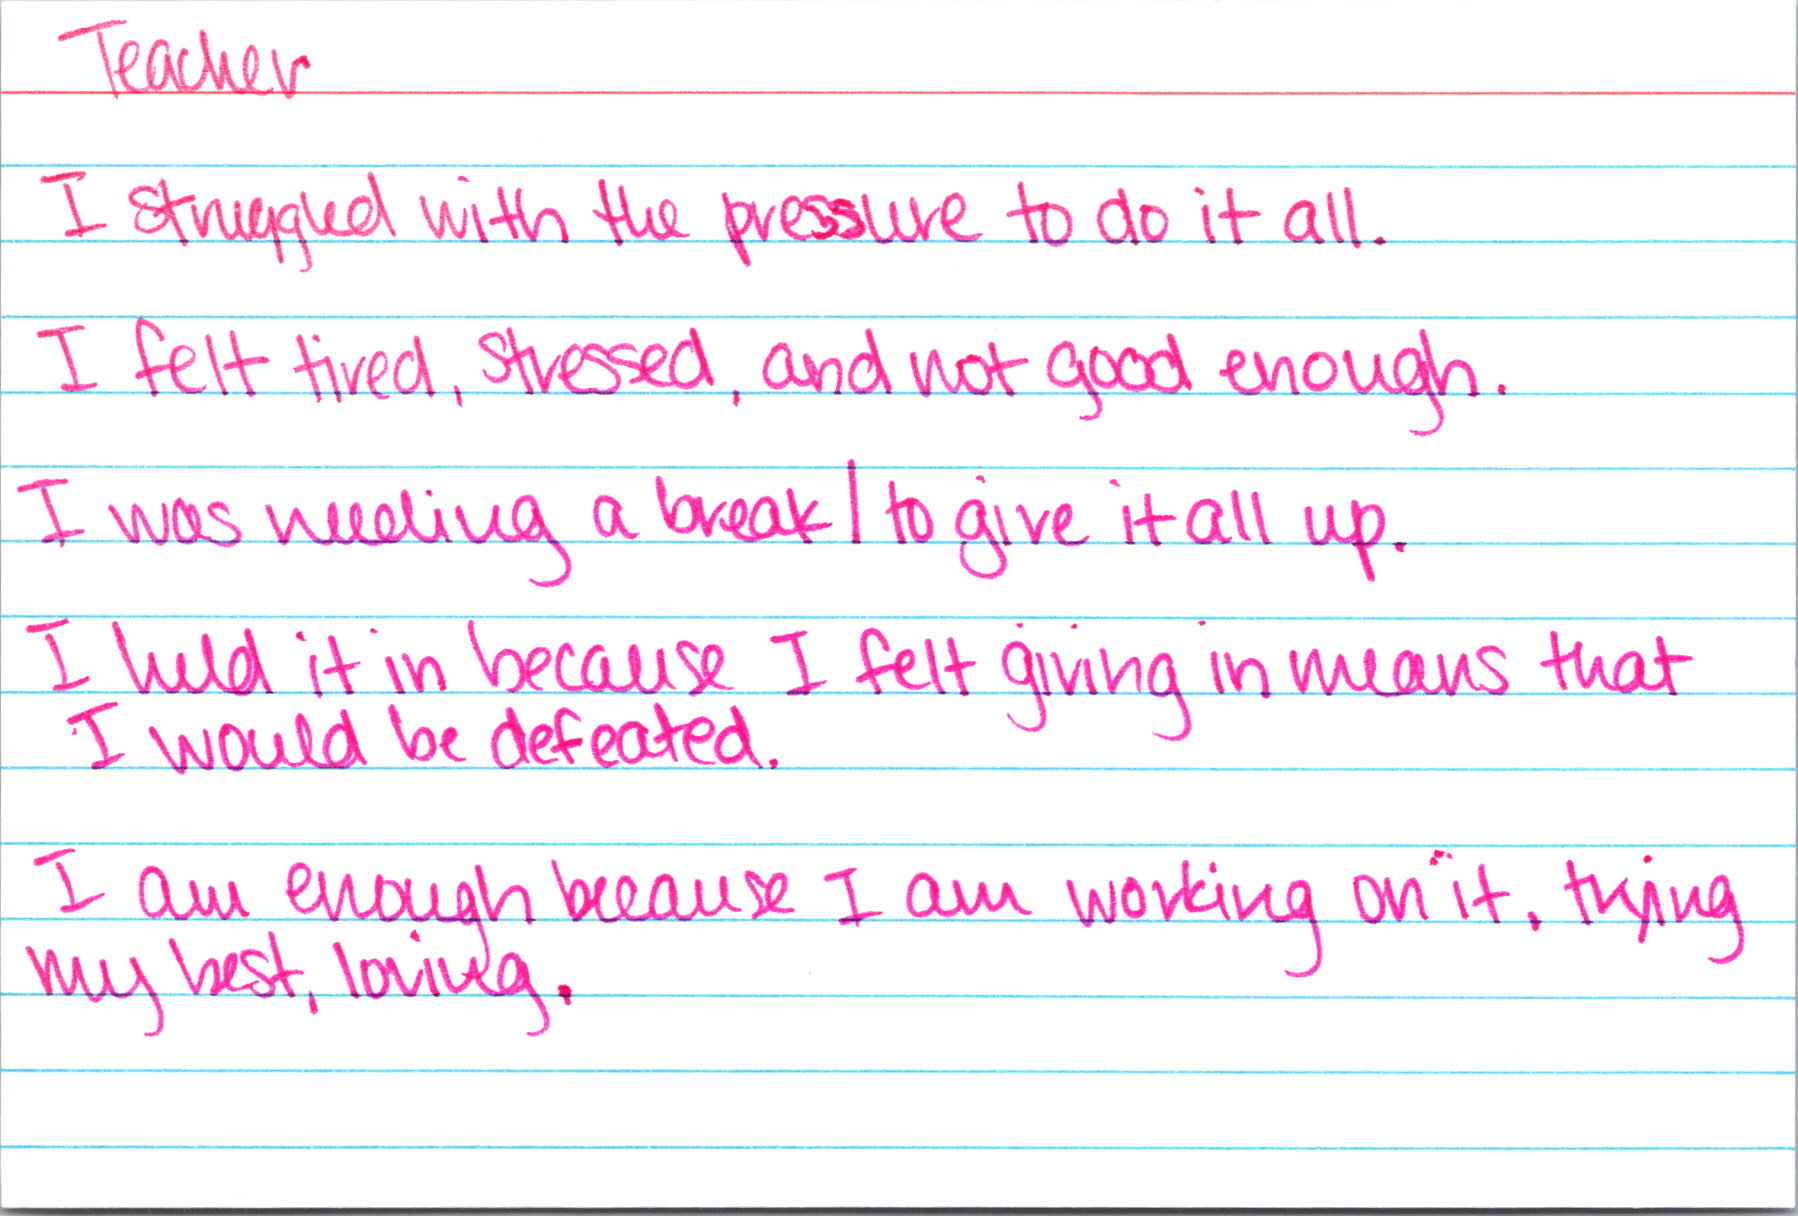 Teacher
I struggled with the pressure to do it all.
I felt tired, stressed, and not good enough.
I was needing a break / to give it all up.
I held it in because I felt giving in means that
I would be defeated.
I am enough because I am working on it, trying
my best, loving.